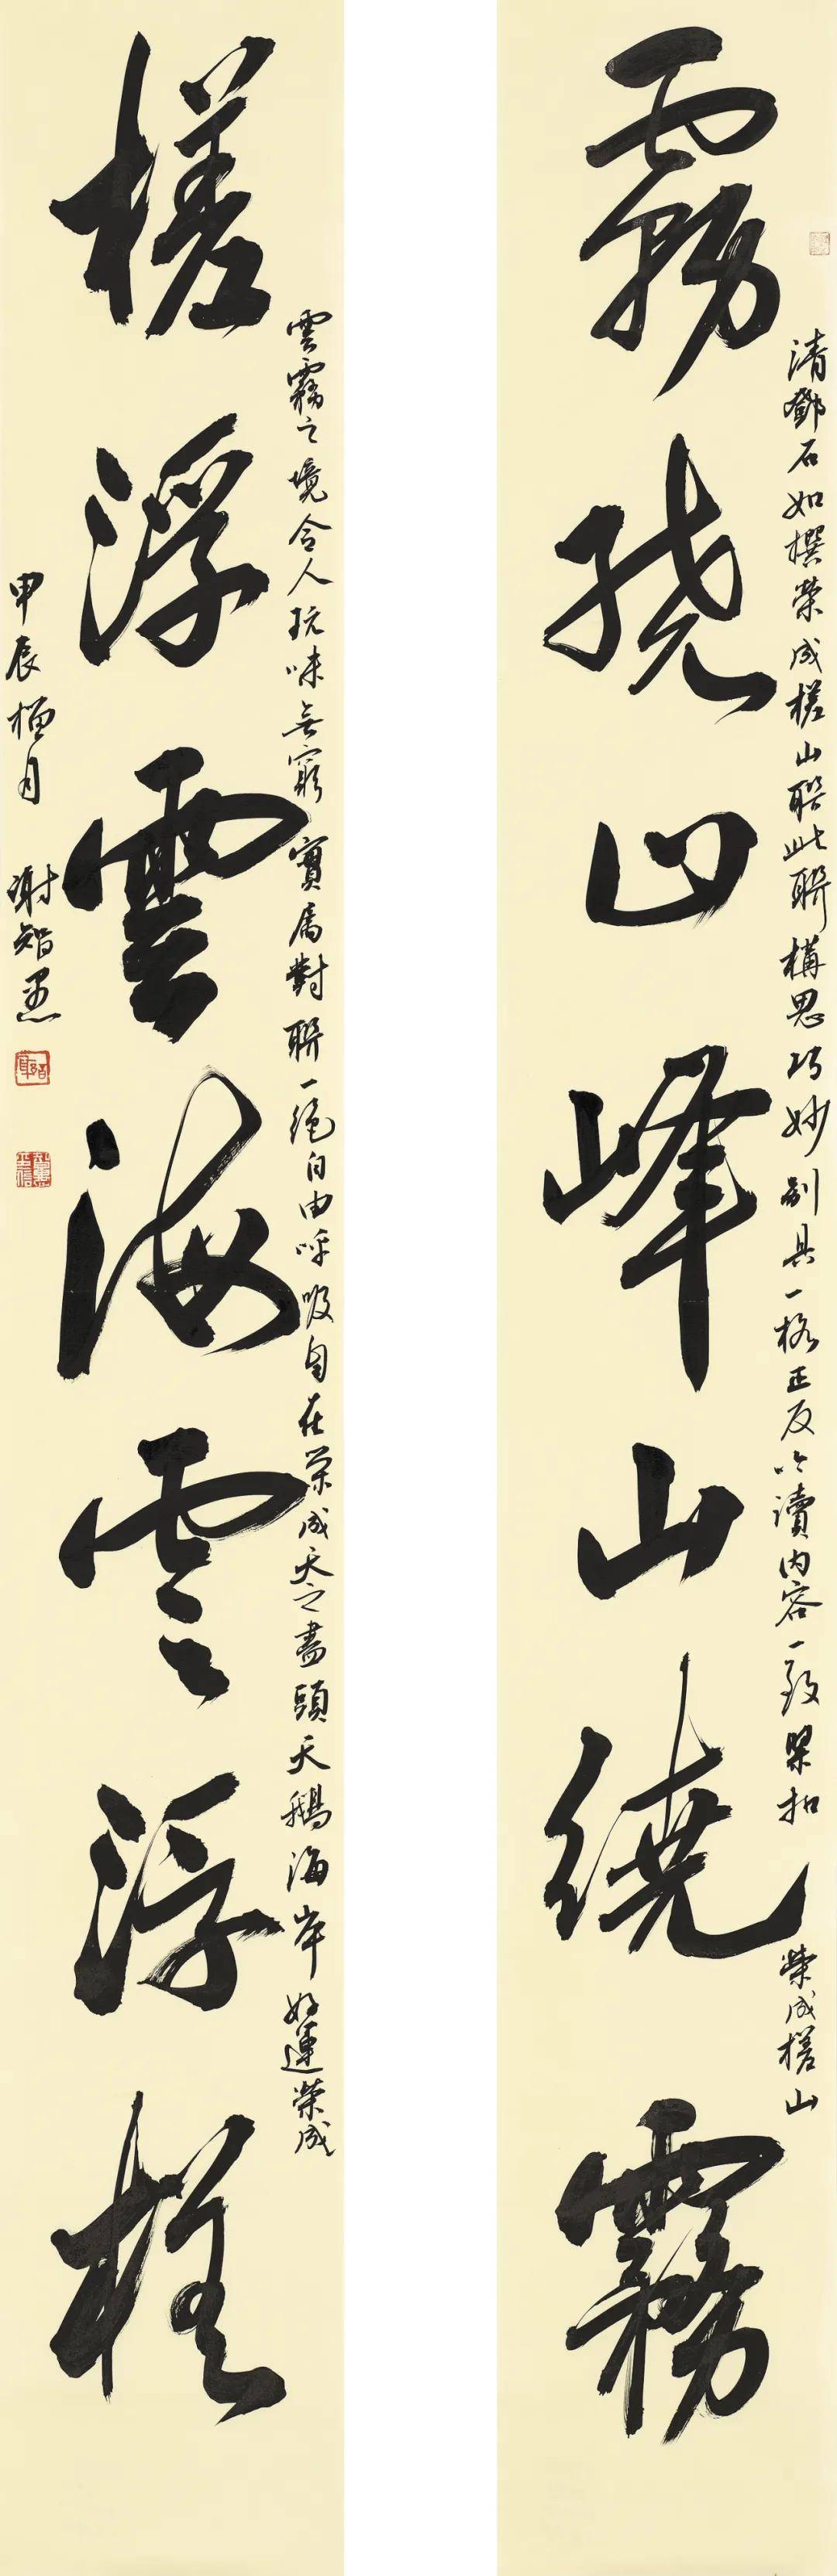 霧繞山峰山繞霧
清鄧石如撰榮成槎山聯此聯構思巧妙别具一格正反吟讀内容一致緊扣榮成槎山
槎浮雲海雲浮槎
雲霧之境令人玩味無窮實屬對聯一絕自由呼吸自在榮成天之盡頭天鵝海岸好運榮成
甲辰榴月 謝智勇